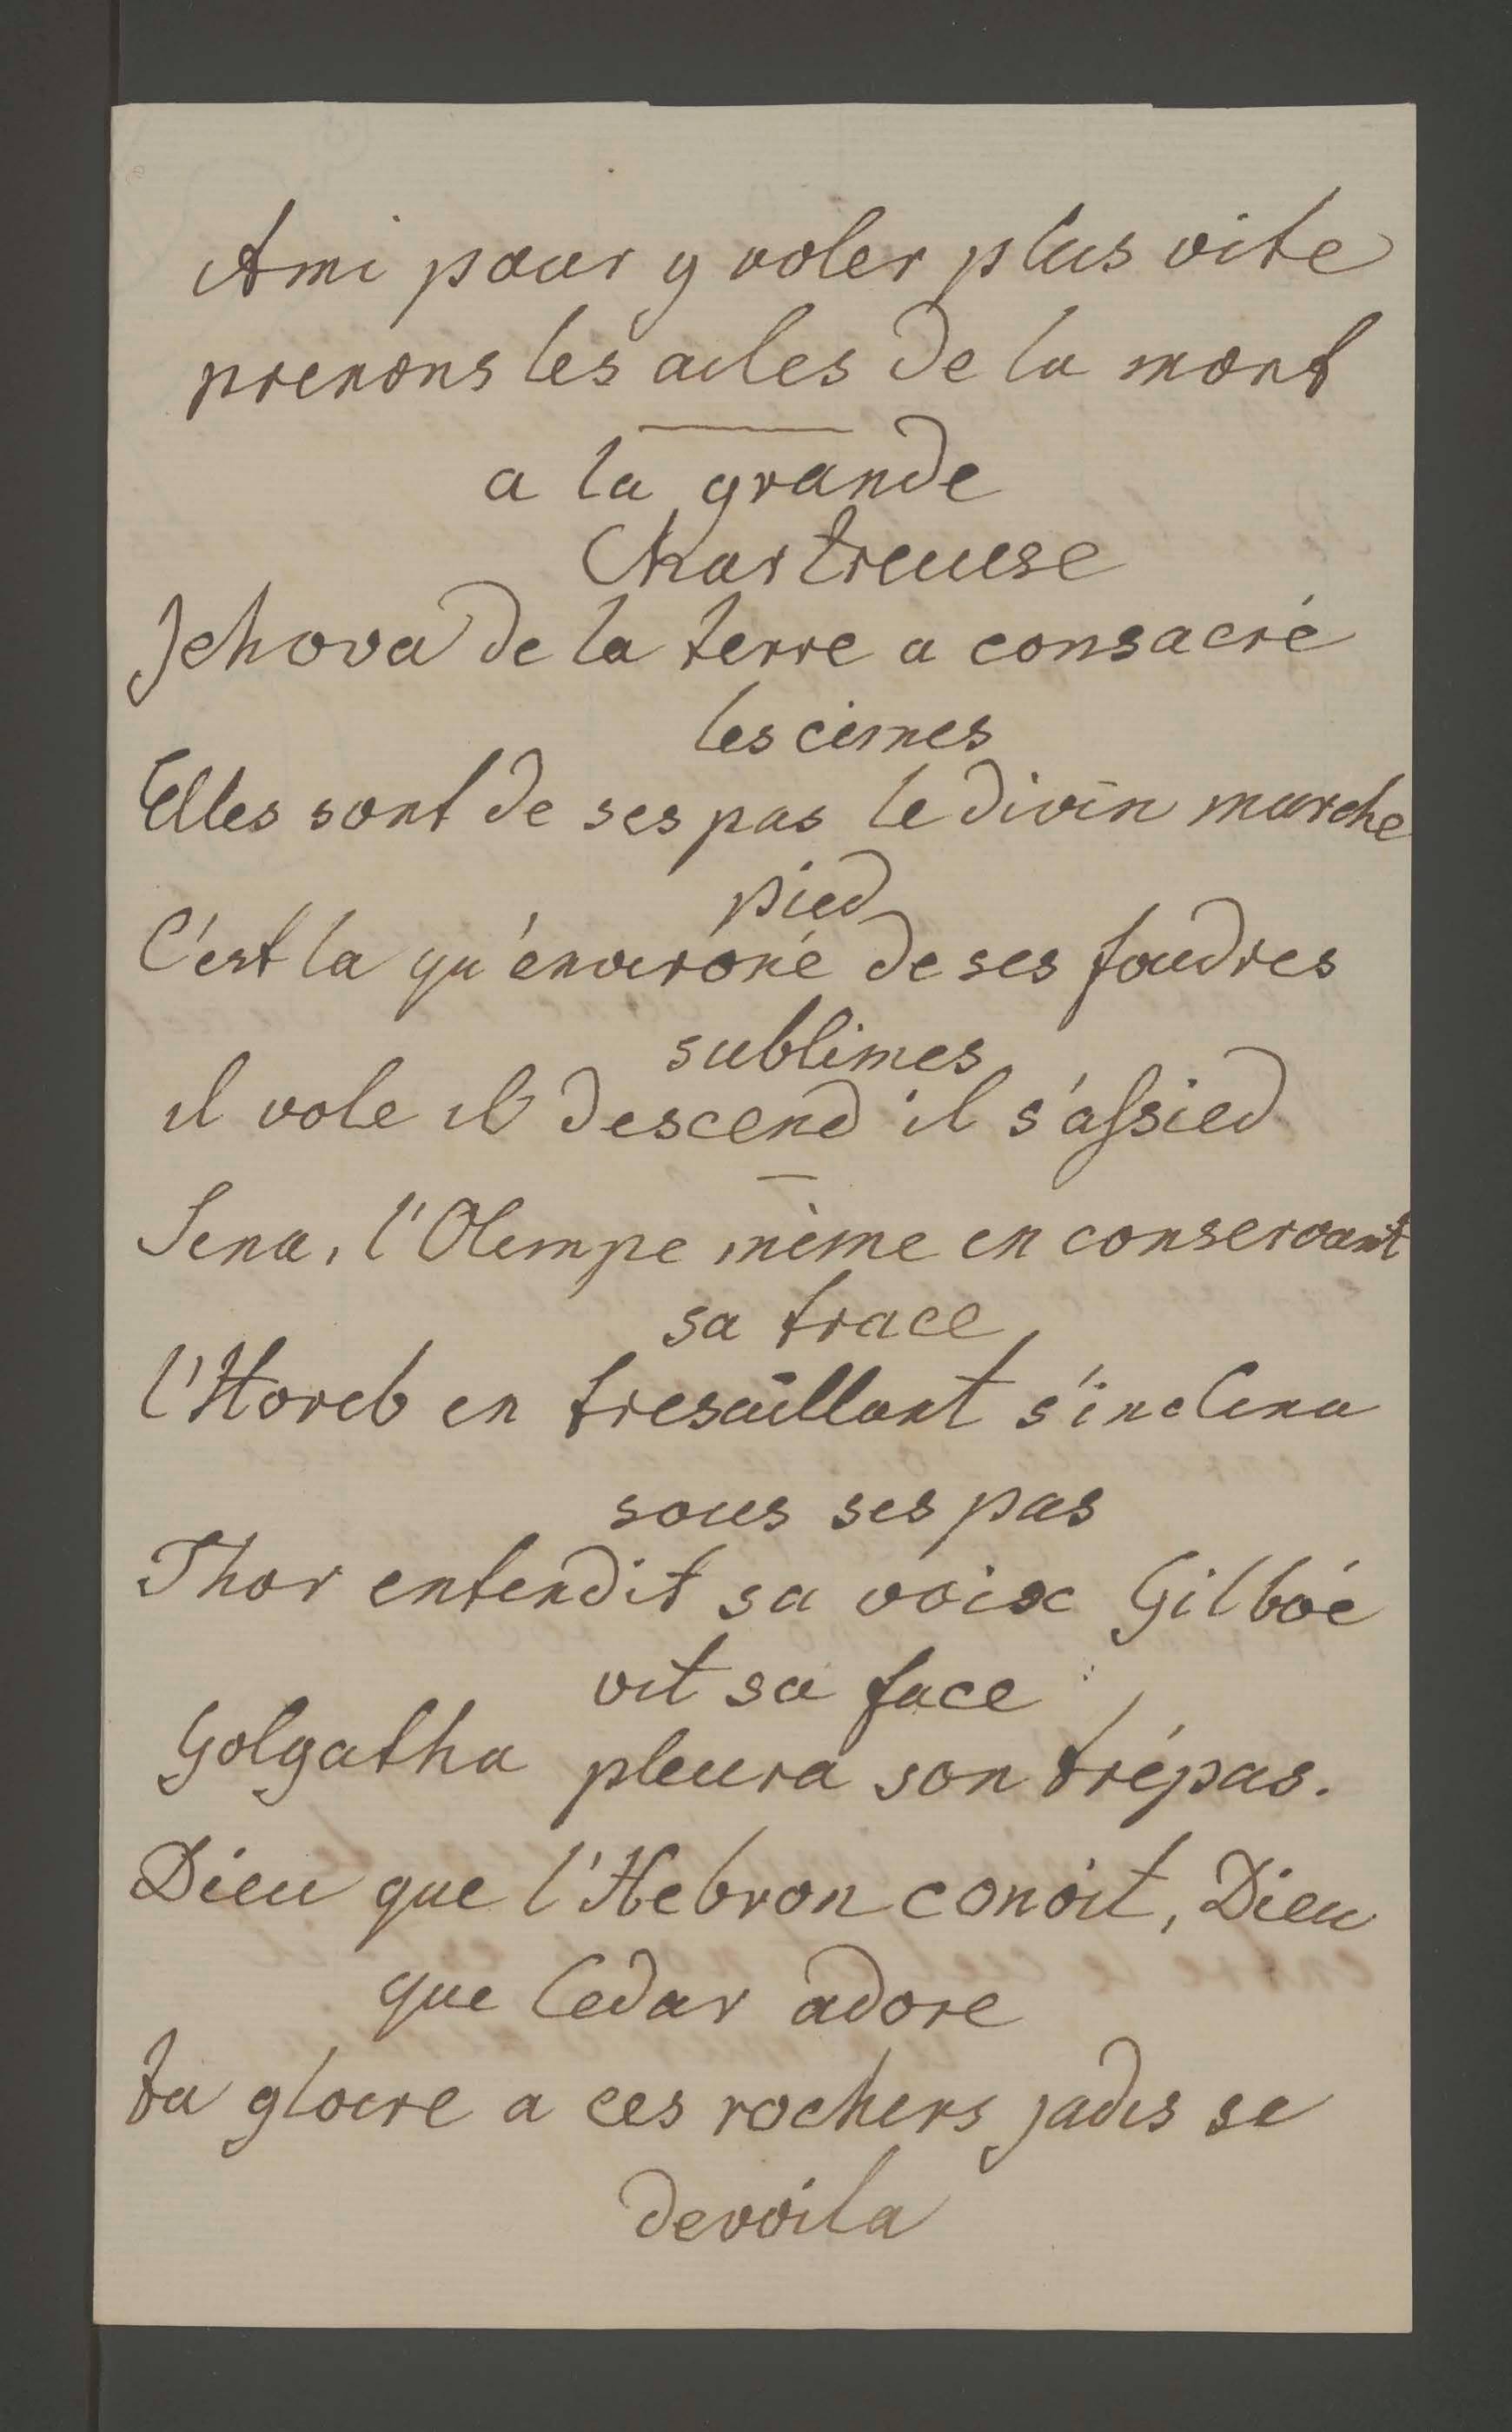 Ami pour y voler plus vite
prenons les ailes de la mort
a la grande
Chartreuse
Jehova de la terre a consacré
les cimes
Elles sont de ses pas le divin marche
pied
C'est la qu'environé de ses foudres
sublimes
il vole il descend il s'assied
Sina, l'Olimpe même en conservant
sa trace
l'Horeb en tresaillant s'inclina
sous ses pas
Thor entendit sa voix Gilboé
vit sa face
Golgatha pleura son trépas.
Dieu que l'Hebron conoit, Dieu
que Cedar adore
ta gloire a ces rochers jadis se
devoila